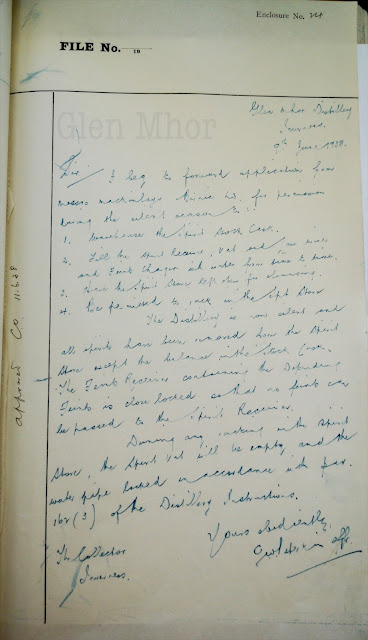 Enclosure No. 24
FILE No. 19
Glen Mhor
Glen Mhor Distillery
Inverness.
9th June 1938.
Sir/ I beg to forward application from
Messrs Mackinlays & Birnie Ltd. for permission
during the silent season to:
1. Warehouse the Spirit Stock Cask.
2. Fill the Spirit Receiver, Vat and
and Feints Charger with water from time to time.
3. Have the Spirit Store left open for cleaning.
4. Be permitted to rack in the Spirit Store
The Distillery is now silent and
all spirits have been removed from the Spirit
Store except the balance in the Stock Cask.
The Feints Receiver containing the Depending
Feints is close locked so that no feints can
be passed to the Spirit Receiver.
During any racking in the Spirit
Store, the Spirit Vat will be empty and the
water pipe locked in accordance with par.
162(3) of the Distillery Instructions.
Yours obediently,
offr.
The Collector
Inverness.
approved CO. 11.6.38